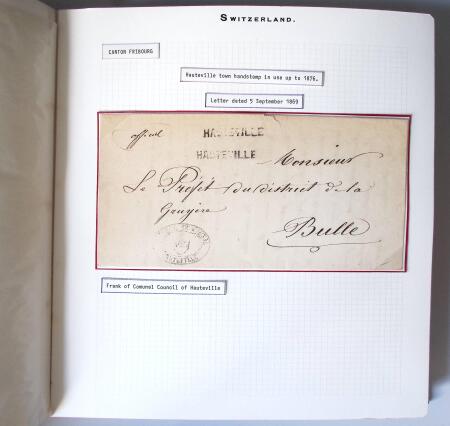 SWITZERLAND.
CANTON FRIBOURG
Hauteville town handstamp in use up to 1876.
Letter dated 5 September 1869
officiel
HAUTEVILLE
HAUTEVILLE
Monsieur
Le Préfet du district de la
Gruyère
Bulle
HAUTEVILLE
Frank of Comunel Council of Hauteville